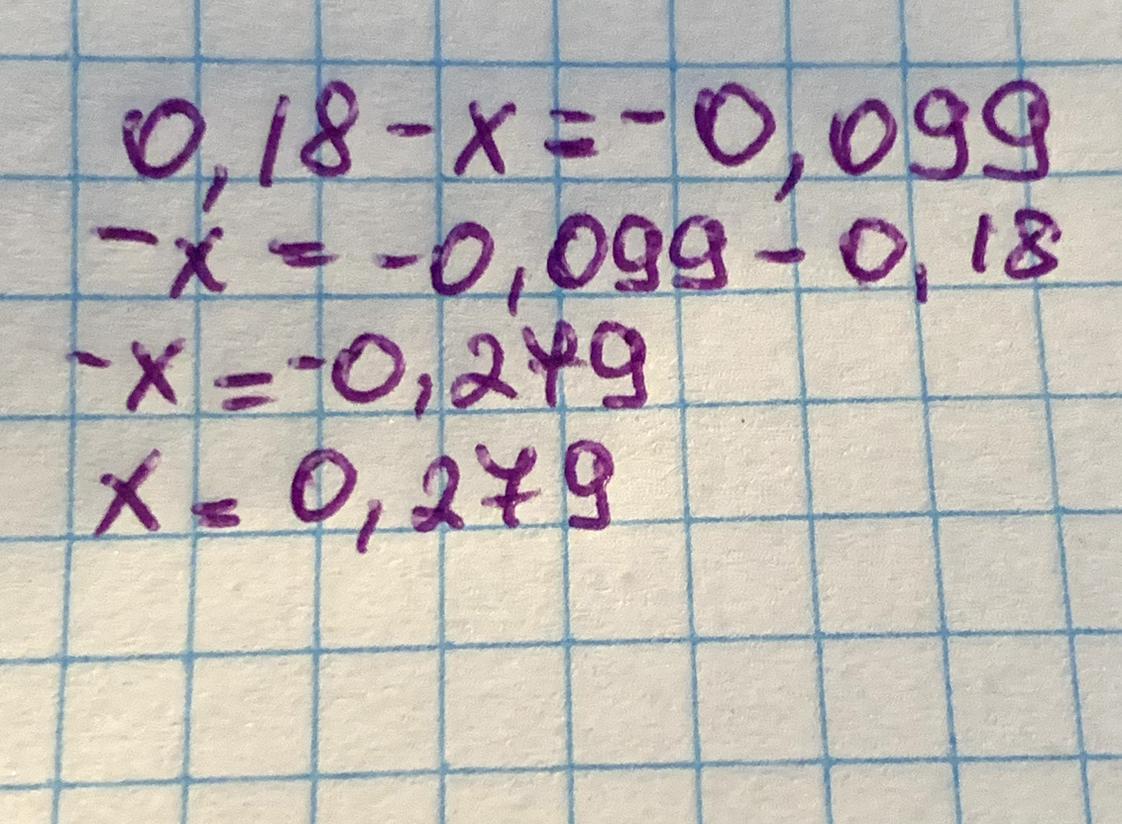 0,18 - x = -0,099
-x = -0,099 - 0,18
-x = -0,279
x = 0,279